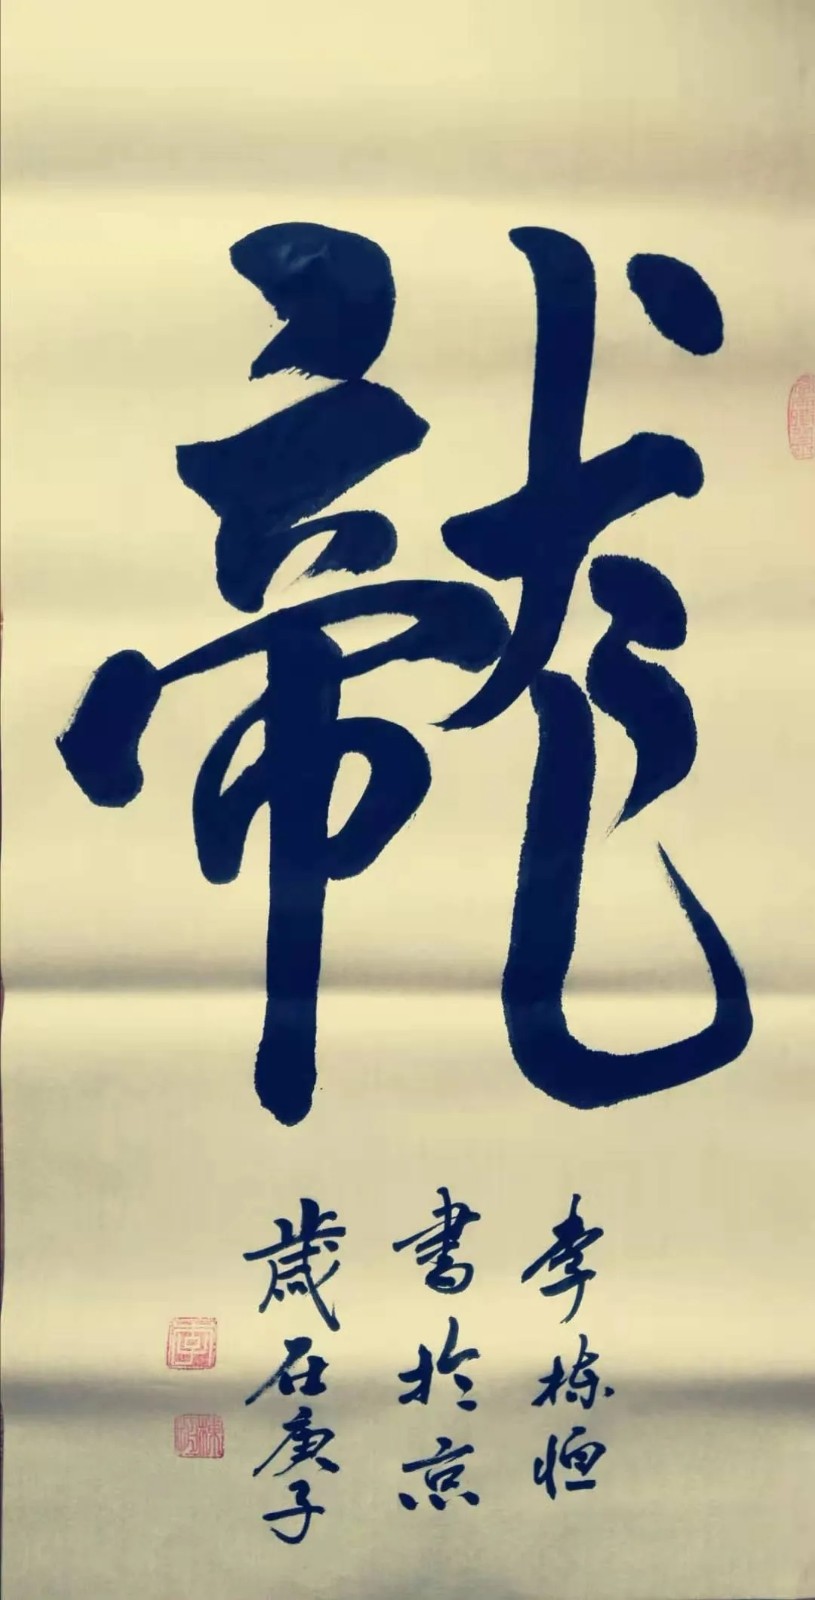 龍
李栋恒
書於京
歲在庚子